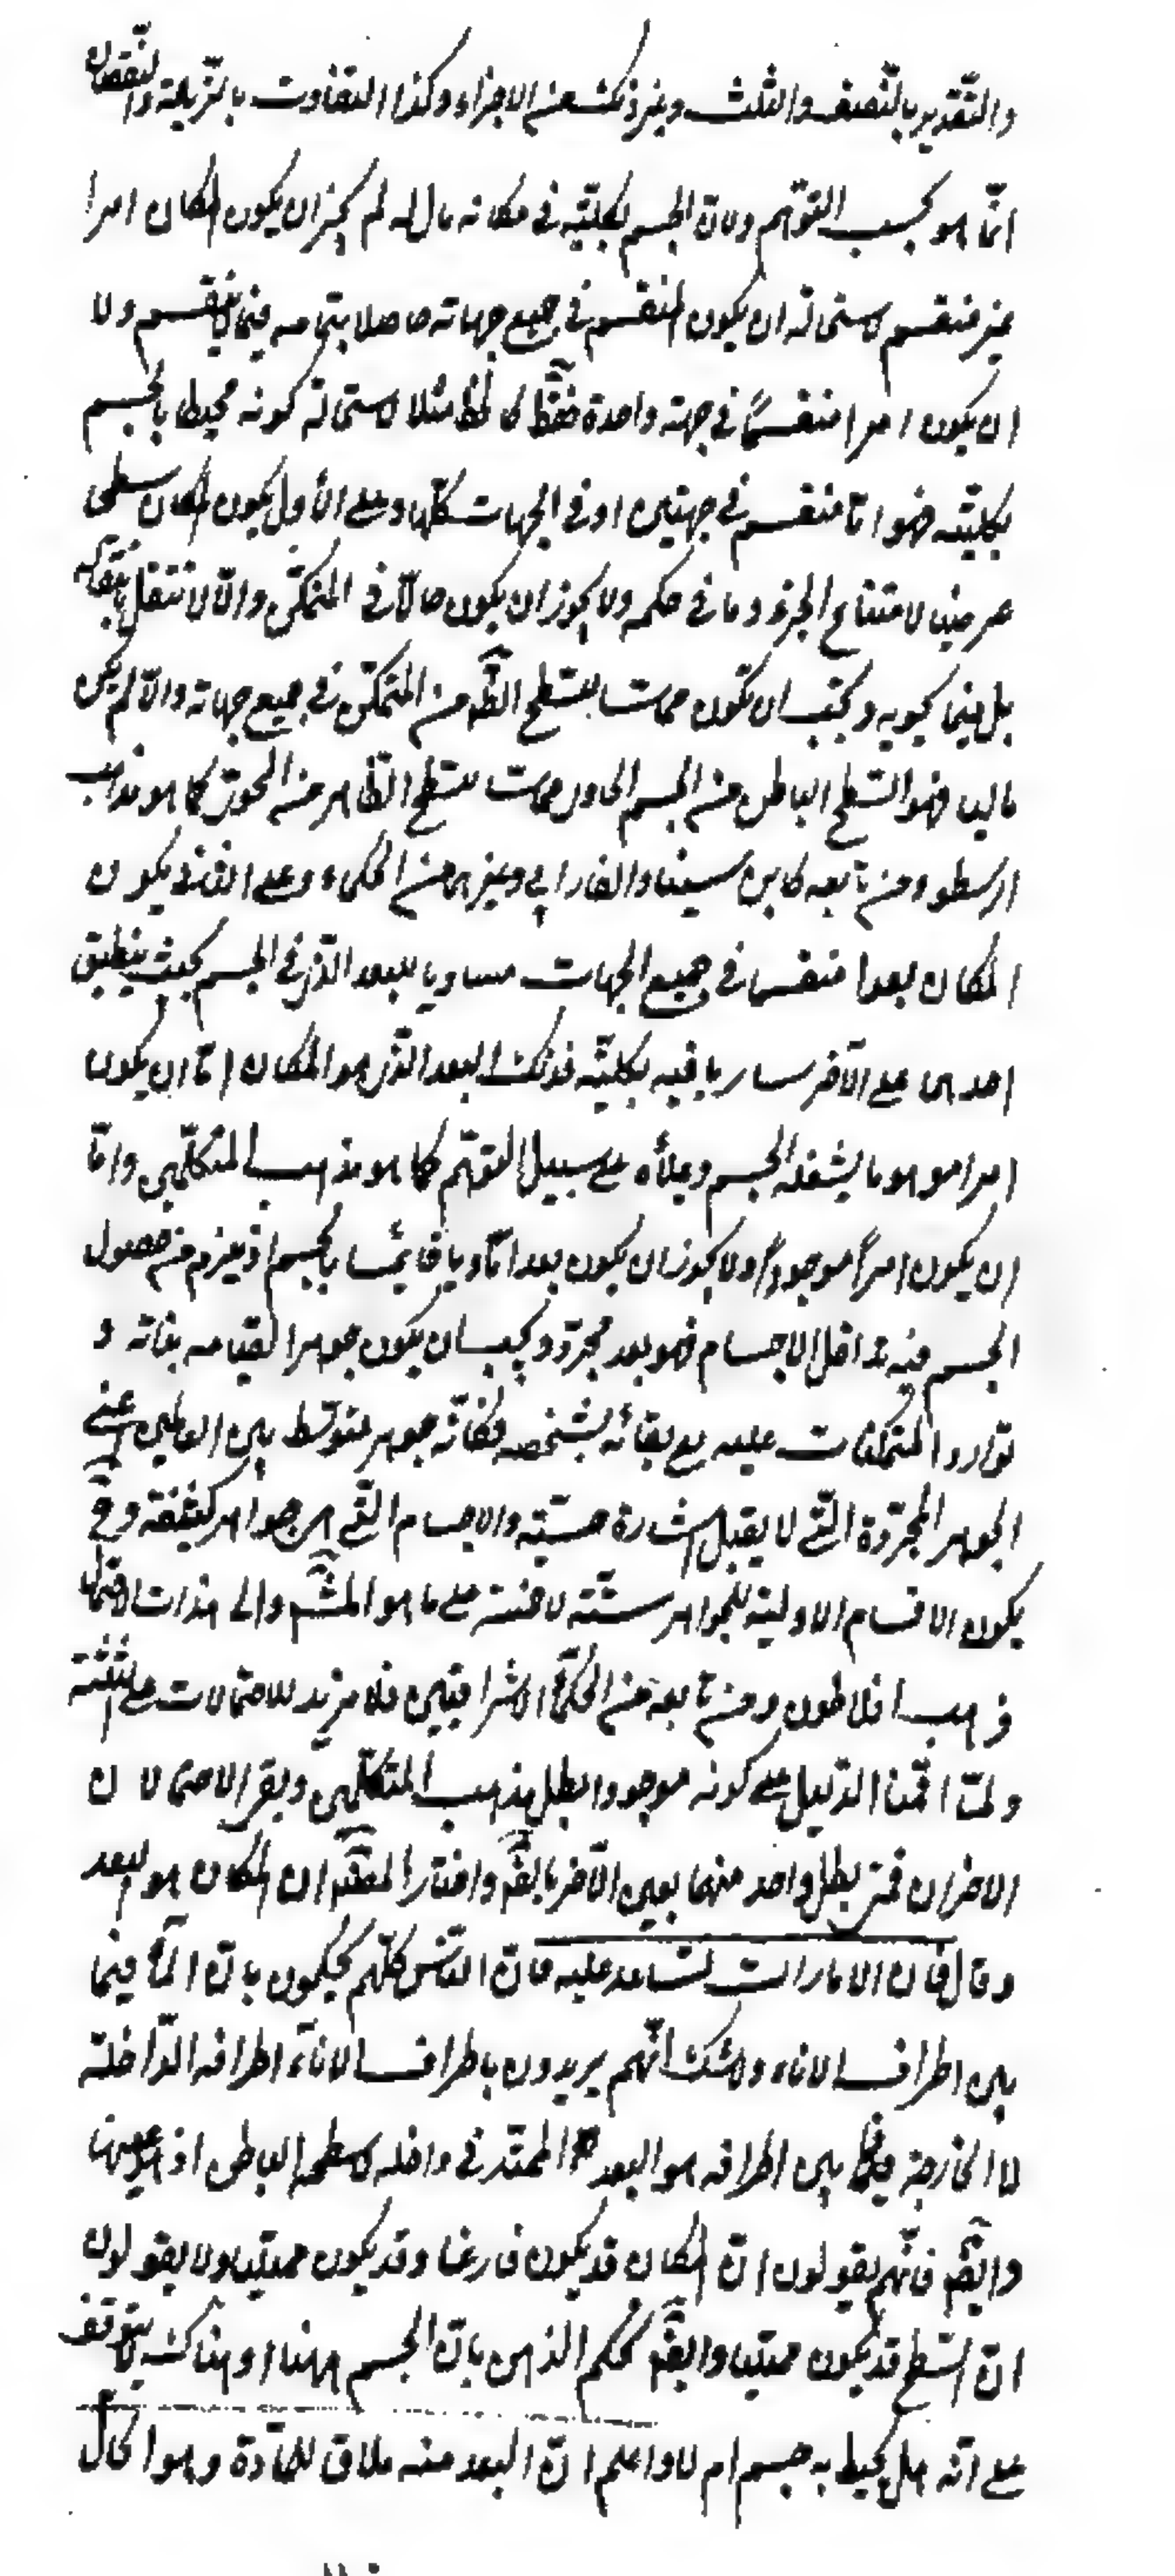 والتقدير بالنصف والثلث وغير ذلك من الاجزاء وكذا التفاوت بالزيادة والنقصان
انما هو بحسب التوهم ولان الجسم بكليته فى مكانه مال له لم يجز ان يكون المكان امرا
غير منقسم لاستحالة ان يكون المنقسم فى جميع جهاته حاصلا بتمامه فيما لا ينقسم ولا
ان يكون امرا منقسما فى جهة واحدة فقط كالخط مثلا لاستحالة كونه محيطا بالجسم
بكليته فهو اما منقسم فى جهتين او فى الجهات كلها وعلى الأول يكون المكان سطحا
عرضيا لامتناع الجزء وما فى حكمه ولا يجوز ان يكون حالا فى المتمكن والا لانتقل بانتقاله
بل فيما يحويه ويجب ان تكون مماسا لسطح الظ من المتمكن فى جميع جهاته والا لم يكن
ماليا فهو السطح الباطن من الجسم الحاوى المماس لسطح الظاهر من المحوى كما هو مذهب
ارسطو ومن تابعه كابن سينا والفارابي وغيرهما من الحكماء وعلى الثانى يكون
المكان بعدا منقسما فى جميع الجهات مساويا للبعد الذى فى الجسم بحيث ينطبق
احدهما على الآخر ساريا فيه بكليته فذلك البعد الذى هو المكان اما ان يكون
امرا موهوما يشغله الجسم ويملأه على سبيل التوهم كما هو مذهب المتكلمين واما
ان يكون امراً موجوداً ولا يجوز ان يكون بعدا ماديا قائما بالجسم اذ يلزم من حصول
الجسم فيه تداخل الاجسام فهو بعد مجرد ويجب ان يكون جوهرا لقيامه بذاته و
توارد المتمكنات عليه مع بقائه بشخصه فكانه جوهر متوسط بين العالمين اعنى
الجواهر المجردة التى لا يقبل اشارة حسية والاجسام التى هى جواهر كثيفة وح
يكون الاقسام الاولية للجواهر ستة لا خمسة على ما هو المشهم والى هذا
ذهب افلاطون ومن تابعه من الحكماء الاشراقيين فلا مزيد للاحتمالات على الثلثة
ولما اقمنا الدليل على كونه موجودا بطل مذهب المتكلمين وبقى الاحتمالان
الاخران فمتى بطل واحد منهما تعين الآخر بالضم واختار المصنف ان المكان هو البعد
وقال فان الامارات تساعد عليه فان الناس كلهم يحكمون بان الماء فيما
بين اطراف الاناء ولا شك انهم يريدون باطراف الاناء اطرافه الداخلة
لا الخارجة فما بين اطرافه هو البعد الممتد فى داخله لا سطحه الباطن اذ هو عينها
وايضم فانهم يقولون ان المكان قد يكون فارغا وقد يكون ممتليا ولا يقولون
ان السطح قد يكون ممتليا وايضم يحكم الذهن بان الجسم ههنا او هناك لا يتوقف
على انه هل يحيط به جسم ام لا واعلم ان البعد منه ملاق للمادة وهو الحال